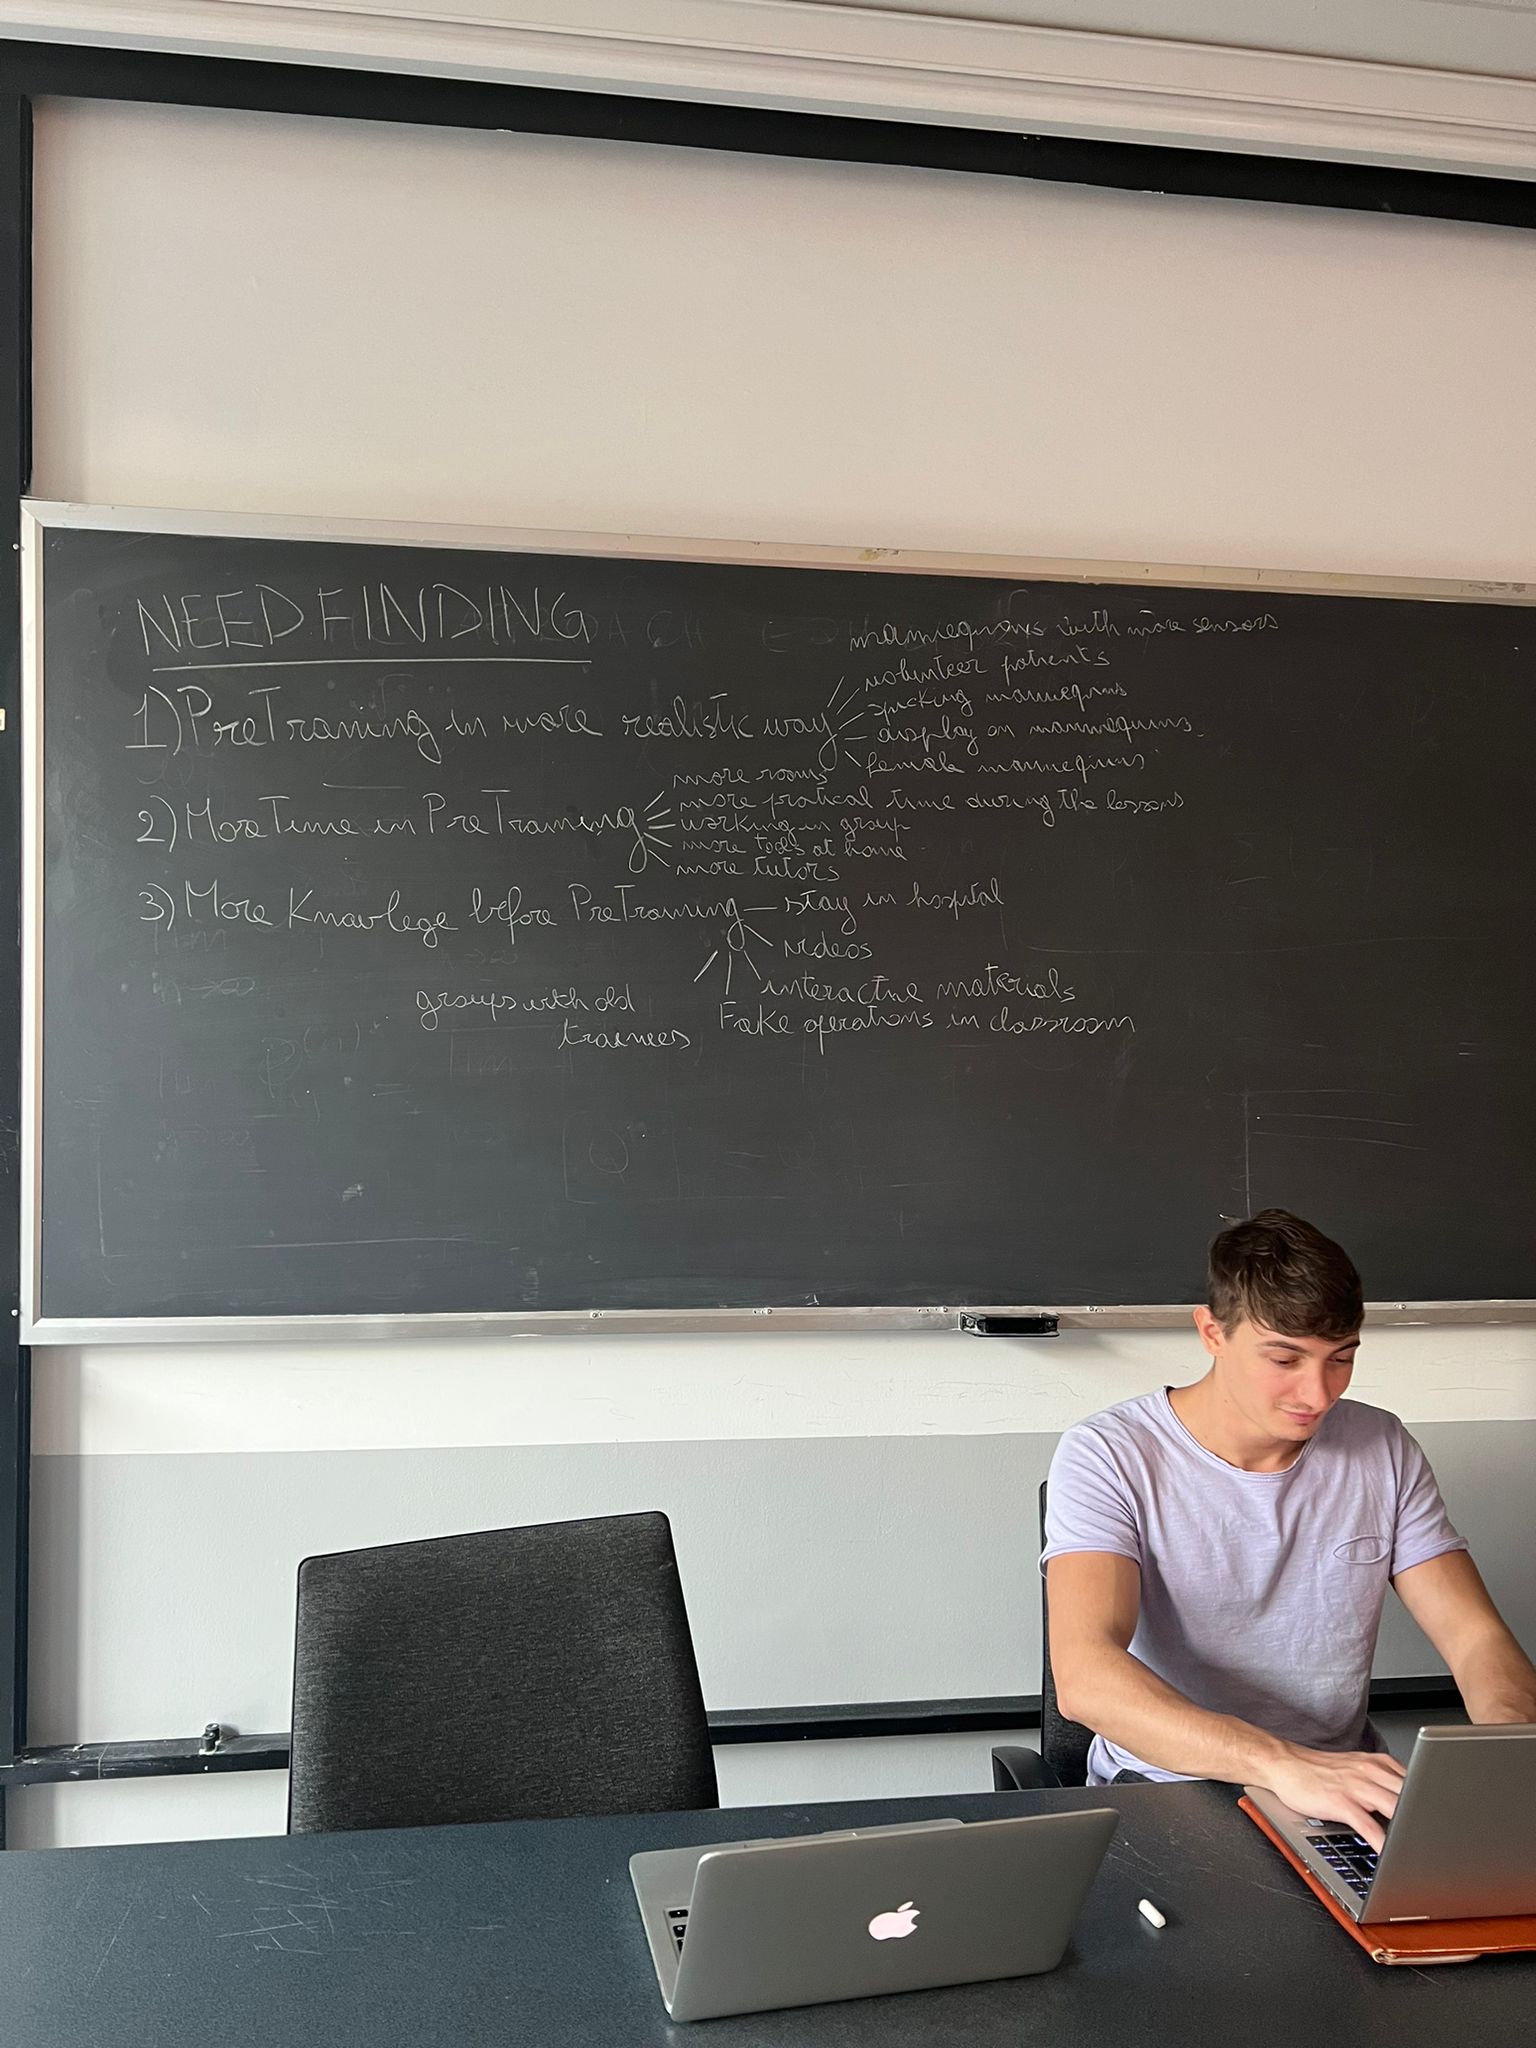 NEEDFINDING
1) PreTraining in more realistic way
mannequins with more sensors
volunteer patients
specking mannequins
display on mannequins.
female mannequins
2) More Time in PreTraining
more rooms
more pratical time during the lessons
working in group
more tools at home
more tutors
3) More Knowlege before PreTraining
stay in hospital
videos
interactive materials
Fake operations in classroom
groups with old
trainees